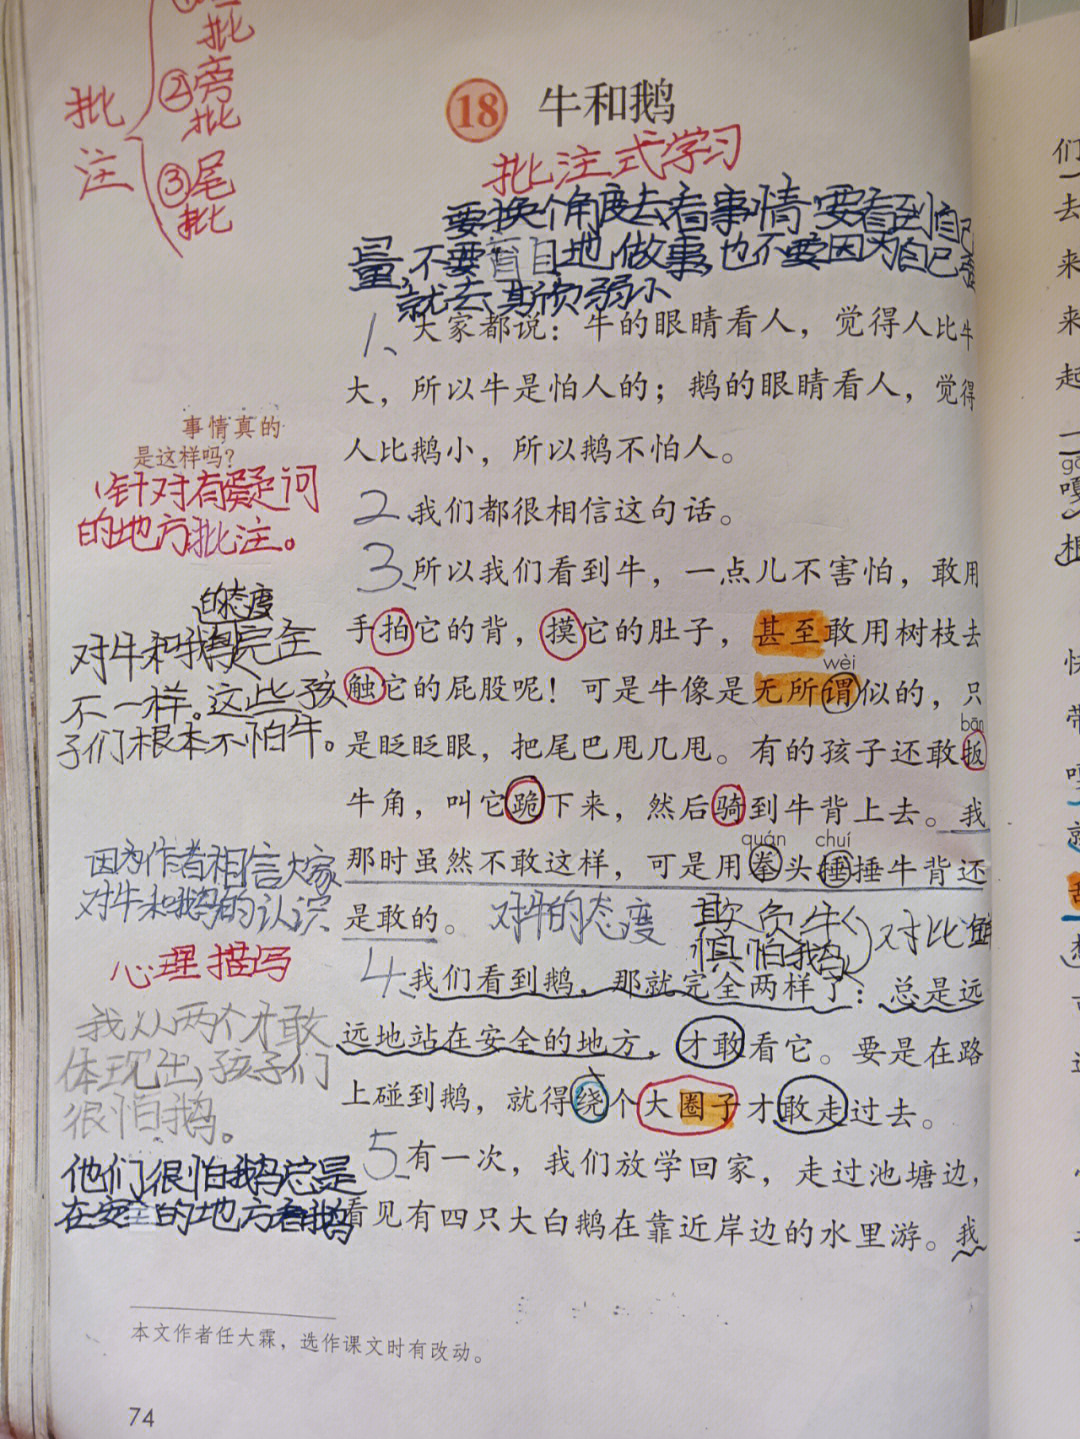 批
②旁
批
批
注
③尾
批
18 牛和鹅
批注式学习
要换个角度去看事情 要看到自己
量,不要盲目地做事,也不要因为自己强
就去欺负弱小
1、大家都说：牛的眼睛看人，觉得人比牛
大，所以牛是怕人的；鹅的眼睛看人，觉得
人比鹅小，所以鹅不怕人。
事情真的
是这样吗？
针对有疑问
的地方批注。
2、我们都很相信这句话。
3、所以我们看到牛，一点儿不害怕，敢用
手拍它的背，摸它的肚子，甚至敢用树枝去
wèi
触它的屁股呢！可是牛像是无所谓似的，只
bān
是眨眨眼，把尾巴甩几甩。有的孩子还敢扳
牛角，叫它跪下来，然后骑到牛背上去。我
quán chuí
那时虽然不敢这样，可是用拳头捶捶牛背还
是敢的。 对牛的态度 欺负牛 对比
惧怕鹅
的态度
对牛和鹅完全
不一样。这些孩
子们根本不怕牛。
因为作者相信大家
对牛和鹅的认识
心理描写
4、我们看到鹅，那就完全两样了：总是远
远地站在安全的地方，才敢看它。要是在路
上碰到鹅，就得绕个大圈子才敢走过去。
我从两个才敢
体现出,孩子们
很怕鹅。
5、有一次，我们放学回家，走过池塘边，
看见有四只大白鹅在靠近岸边的水里游。我
他们很怕鹅总是
在安全的地方看鹅
本文作者任大霖，选作课文时有改动。
74
们
去
来
来
起